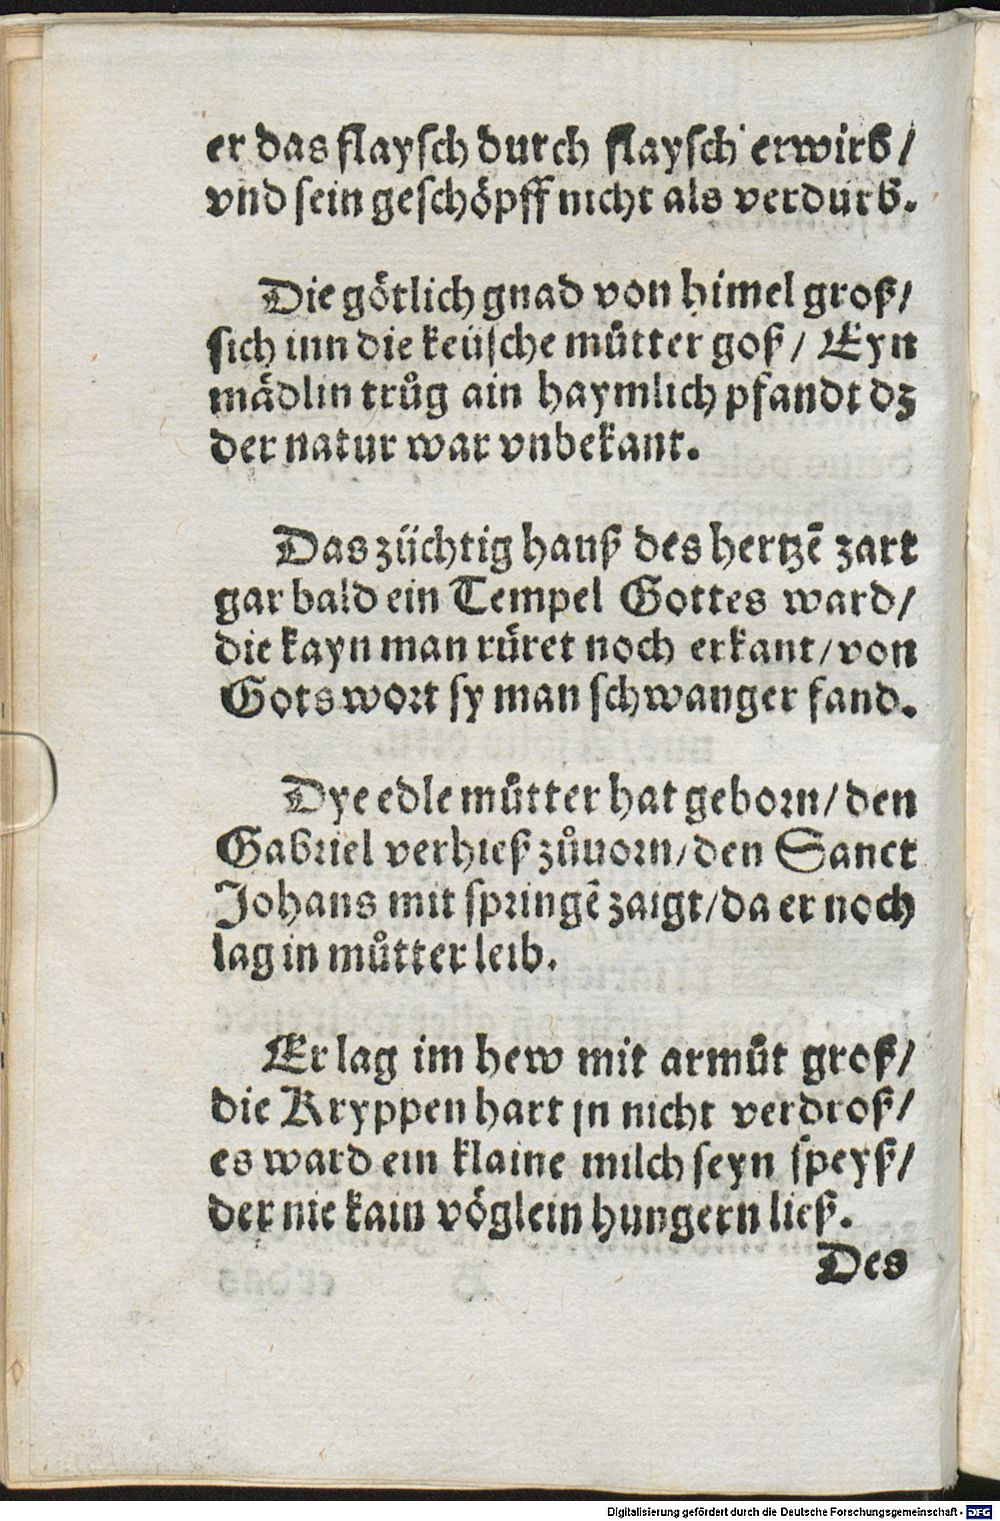 er das flaysch durch flaysch erwirb/
vnd sein geschöpff nicht als verdurb.
Die götlich gnad von himel groß/
sich inn die keüsche můtter goß/ Eyn
mädlin trůg ain haymlich pfandt dz
der natur war vnbekant.
Das züchtig hauß des hertzē zart
gar bald ein Tempel Gottes ward/
die kayn man rüret noch erkant/von
Gots wort sy man schwanger fand.
Dye edle můtter hat geborn/den
Gabriel verhieß zůuorn/den Sanct
Johans mit springē zaigt/da er noch
lag in můtter leib.
Er lag im hew mit armůt groß/
die Kryppen hart jn nicht verdroß/
es ward ein klaine milch seyn speyß/
der nie kain vöglein hungern ließ.
Des
Digitalisierung gefördert durch die Deutsche Forschungsgemeinschaft - DFG